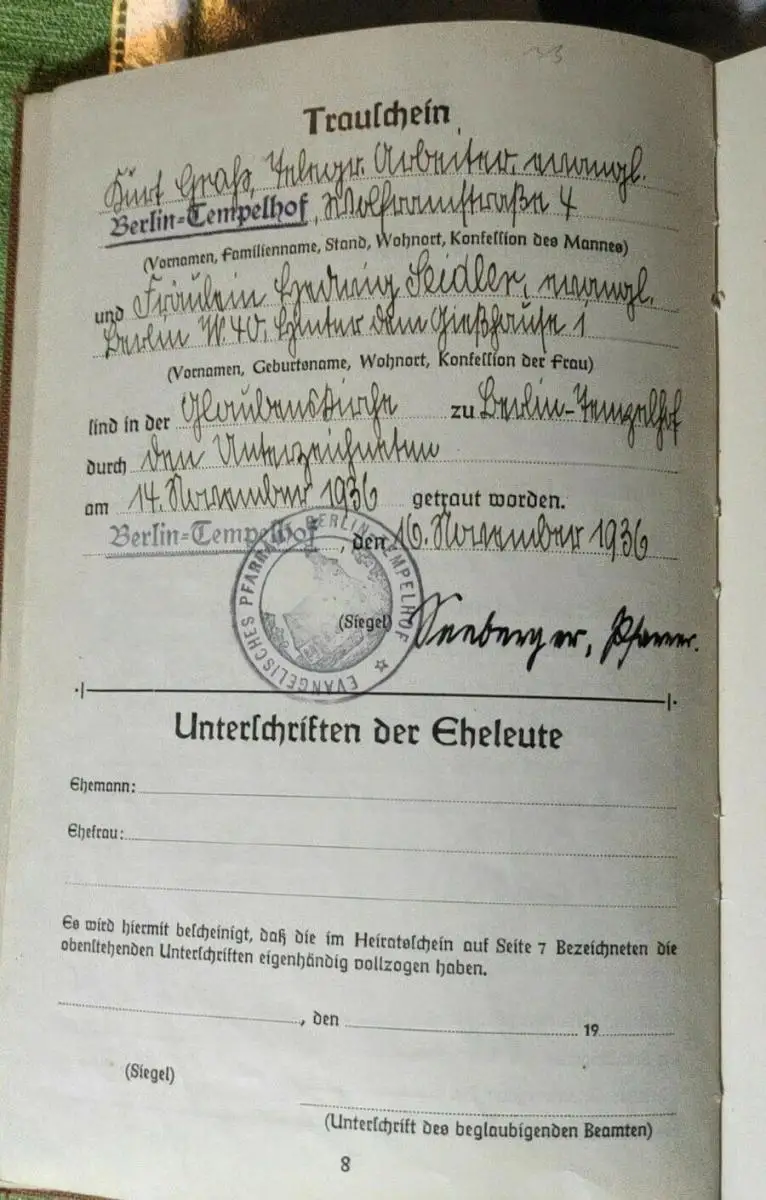 Trauschein
Kurt Graß, Telegr. Arbeiter, evangl.
Berlin=Tempelhof, Wolframstraße 4
(Vornamen, Familienname, Stand, Wohnort, Konfession des Mannes)
und Fräulein Hedwig Seidler, evangl.
Berlin W. 40, Hinter dem Gießhause 1
(Vornamen, Geburtsname, Wohnort, Konfession der Frau)
sind in der Glaubenskirche zu Berlin-Tempelhof
durch den Unterzeichneten
am 14. November 1936 getraut worden.
Berlin=Tempelhof, den 16. November 1936
EVANGELISCHES PFARRAMT BERLIN TEMPELHOF
(Siegel) Seeberger, Pfarrer.
Unterschriften der Eheleute
Ehemann:
Ehefrau:
Es wird hiermit bescheinigt, daß die im Heiratsschein auf Seite 7 Bezeichneten die
obenstehenden Unterschriften eigenhändig vollzogen haben.
, den 19
(Siegel)
(Unterschrift des beglaubigenden Beamten)
8